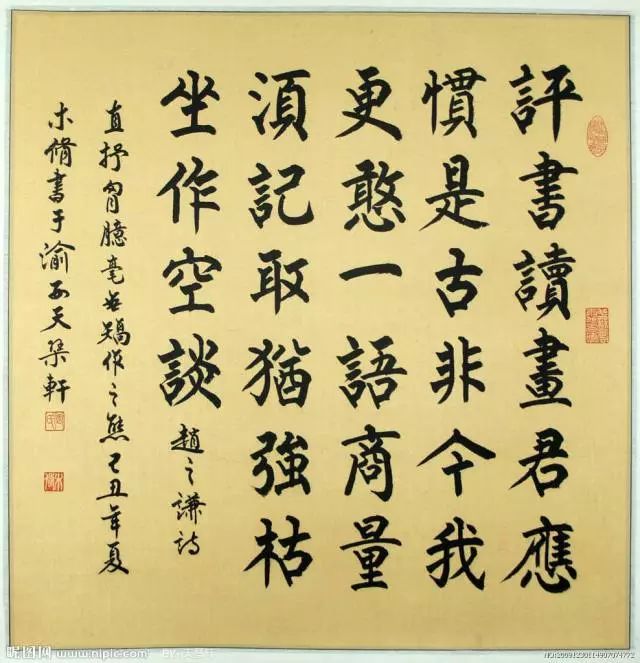 評書讀畫君應
慣是古非今我
更憨一語商量
湏記取猶強枯
坐作空談 趙之謙詩
直抒胷臆毫無矯作之態己丑年夏
脩書于渝西天琹軒
昵图网 www.nipic.com BY:
NO:20091230114907074772